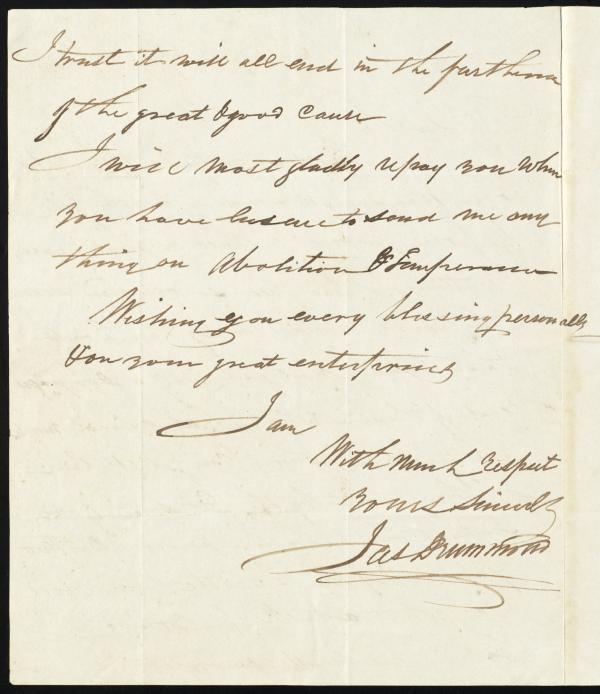 I trust it will all end in the furtherance
of the great & good cause
I will most gladly repay you when
you have leisure to send me any
thing on Abolition & Temperance
Wishing you every blessing personally
& on your great enterprises
I am
With much respect
Yours Sincerely
Jas Drummond